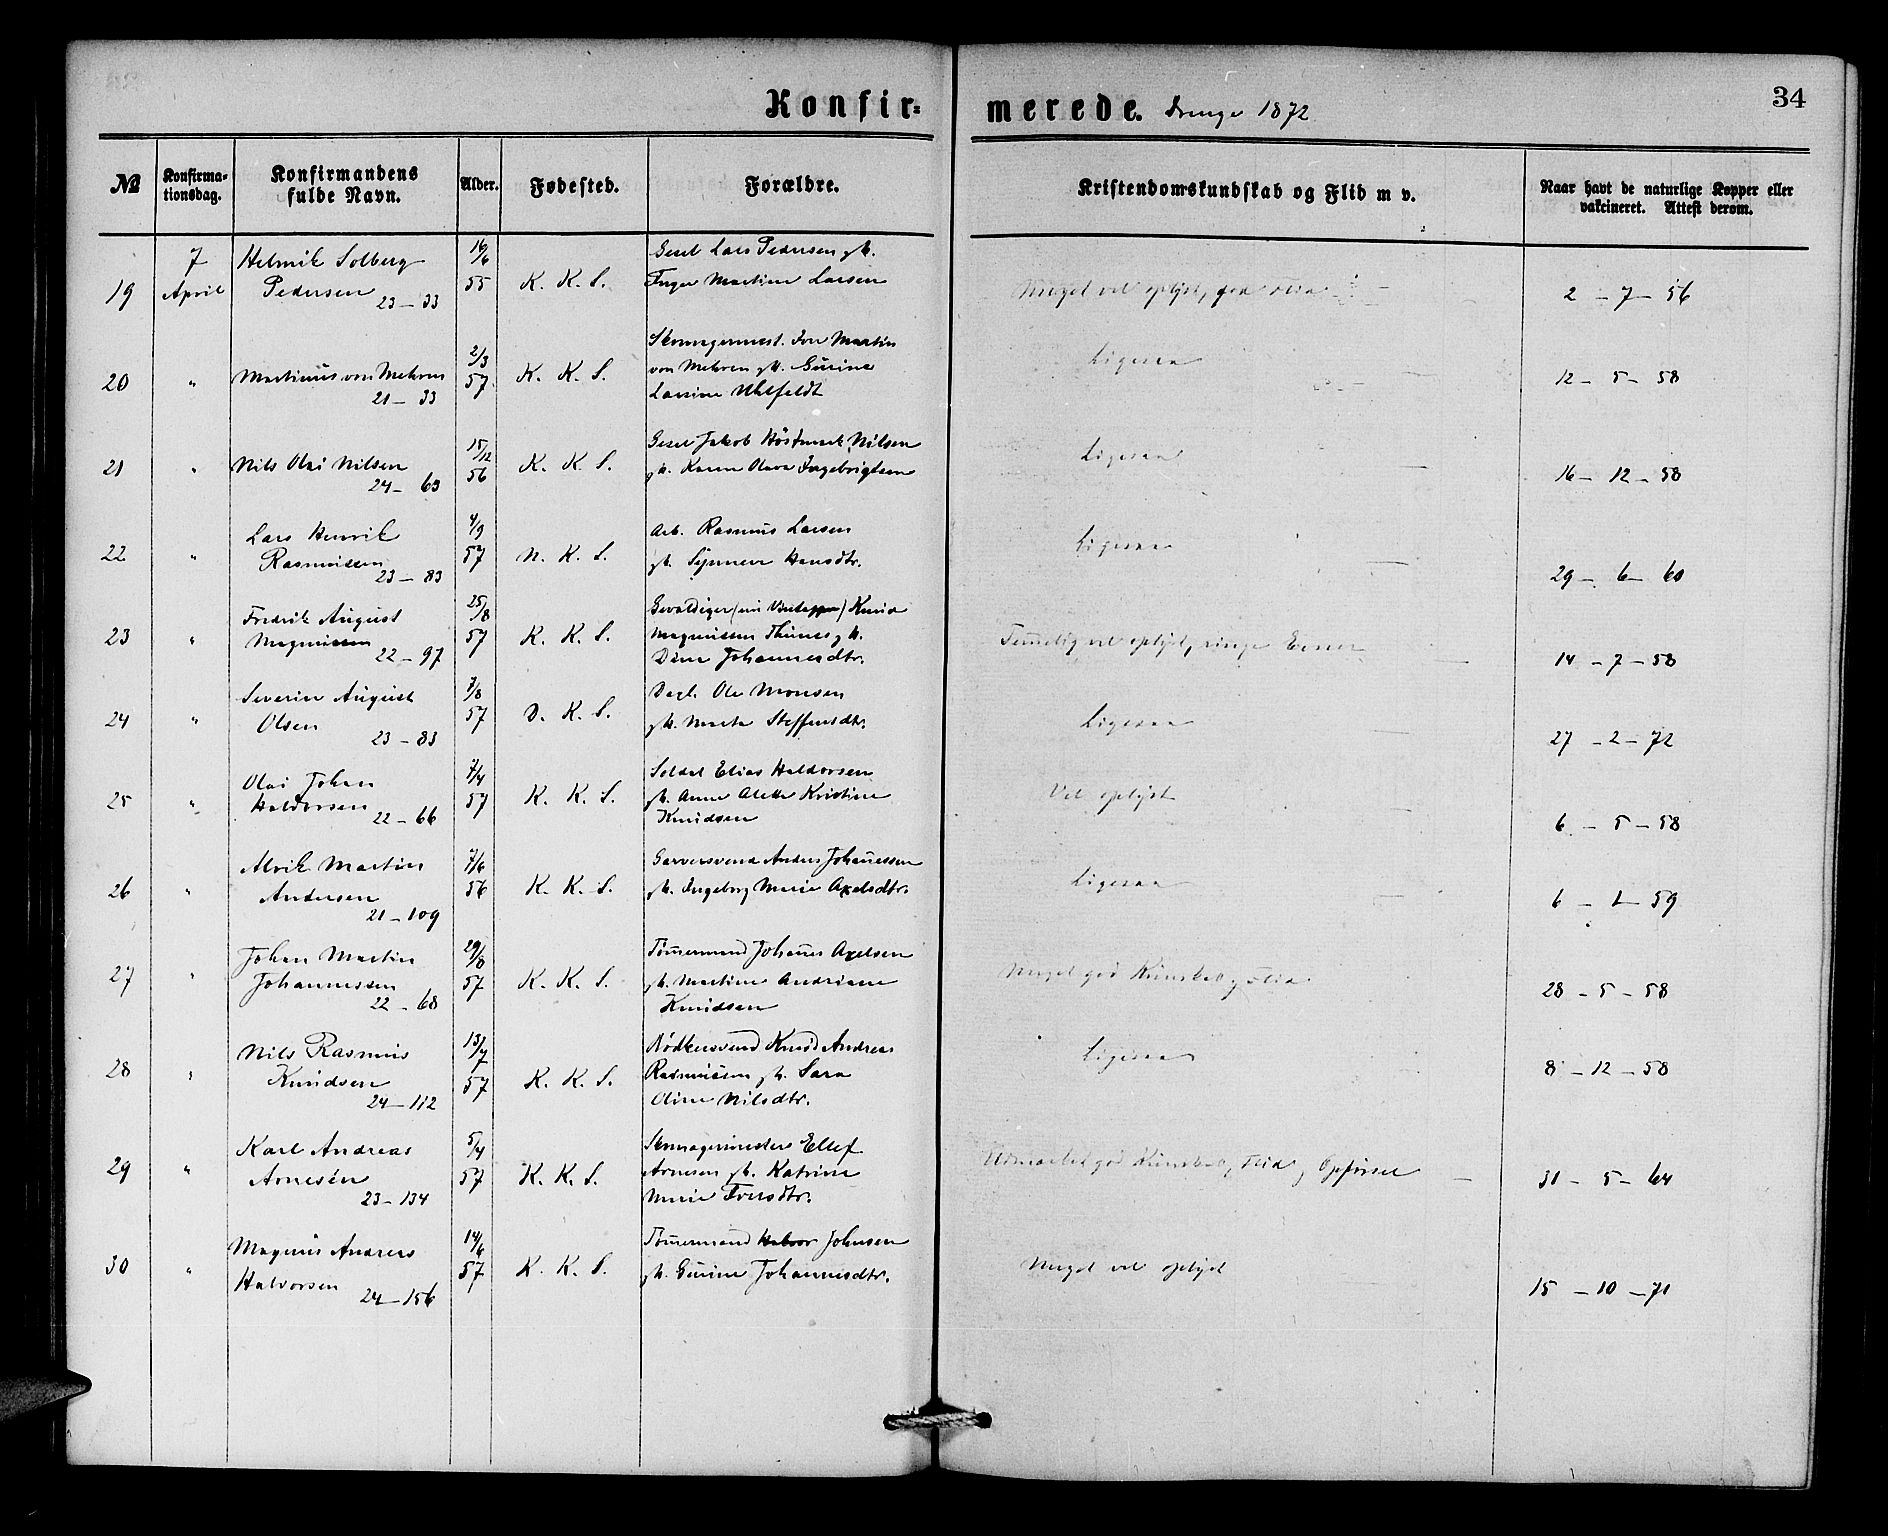 Konfir= merede. Drenge 1872
34
№ Konfirma- tionsdag. Konfirmandens fulde Navn. Alder. Fødested. Forældre. Kristendomskundskab og Flid m v. Naar havt de naturlige Kopper eller vakcineret. Attest derom.
7 Helmik Solberg 16/6 Lars Pedersen gh.
19 April Pedersen 55 K. K. S. Inger Martine Larsen Meget vel oplyst, god Flid 2 - 7 - 56
23 - 33
Skomagermest. Martin
2/3 von Mehren gh. Gurine Ligesaa
20 " Martinus von Mehren 57. K. K. S. Larsine Uhlfeldt 12 - 5 - 58
21 - 33
15/12 Jakob Nilsen
21 " Nils Olai Nilsen 56 K. K. S. gh. Karen Olava Ingebrigtsen Ligesaa 16 - 12 - 58
24 - 63
Lars Henrik 4/9 Arb. Rasmus Larsen
22 " Rasmussen 57 N. K. S. gh. Synneve Hansdtr. Ligesaa 29 - 6 - 60
23 - 83
Fredrik August 25/8 Gevaldiger Knud
23 " Magnussen 57 K. K. S. Magnussen gh. Temmelig vel oplyst, ringe Evner 14 - 7 - 58
22 - 97 Dine Johannesdtr.
Severin August 7/8 Dagl. Ole Monsen
24 " Olsen 57 D. K. S. gh. Marta Steffensdtr. Ligesaa 27 - 2 - 72
23 - 83
Olai Johan 7/4 Soldat Elias Haldorsen
25 " Haldorsen 57 K. K. S. gh. Anne Alette Kristine Vel oplyst 6 - 5 - 58
22 - 66 Knudsen
Alrik Martin 7/6 Garversvend Anders Johanessen
26 " Andersen 56 K. K. S. gh. Ingeborg Marie Axelsdtr. Ligesaa 6 - 1 - 59
21 - 109
Johan Martin 29/8 Tømermand Johanes Axelsen
27 " Johannessen 57 K. K. S. gh. Martine Andriane Meget god Kundskab og Flid 28 - 5 - 58
22 - 68 Knudsen
Nils Rasmus 13/7 Bødkersvend Knud Andreas
28 " Knudsen 57 K. K. S. Rasmussen gh. Sara Ligesaa 8 - 12 - 58
24 - 112 Oline Nilsdtr.
Karl Andreas 5/4 Skomagermester Ellef
29 " Arnesen 57 K. K. S. Arnesen gh. Katrine Udmærket god Kundskab, Flid og Opførsel 31 - 5 - 64
23 - 134 Marie Iversdtr.
Magnus Andreas 14/6 Tømermand Johnsen
30 " Halvorsen 57 K. K. S. gh. Gurine Johannesdtr. Meget vel oplyst 15 - 10 - 71
24 - 156